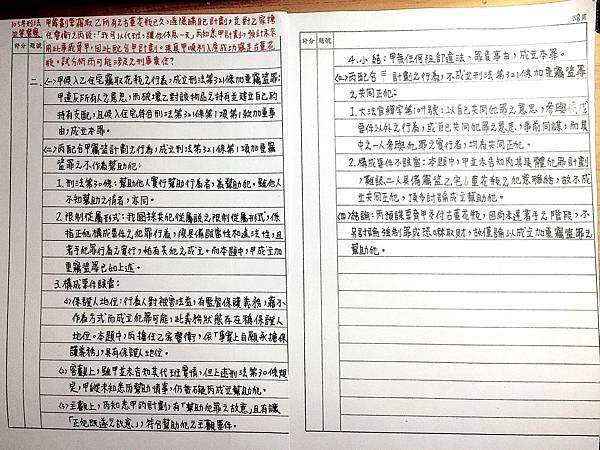 105年刑法
四等警察
甲籌劃要竊取乙所有之古董花瓶已久,透過竊自己計劃,並對乙家擔
任實習之丙說:「我可以代班,讓你休息一天」丙知悉甲計劃,惟計未來
用此事威脅甲,因此配合甲計劃。未異甲順利入屋成功竊走古董
花瓶。試分析丙可能涉及之刑事責任?
評分 題號
評分 題號
二、
(一)甲侵入乙住宅竊取花瓶之行為,成立刑法第321條加重竊盜罪:
甲違反所有人之意思,而破壞乙對該物品之持有並建立自己的
持有支配,且侵入住宅符合刑法第321條第1項第1款加重事
由,成立本罪。
(二)丙配合甲竊盜計劃之行為,成立刑法第321條第1項加重竊
盜罪之不作為幫助犯:
1.刑法第30條:幫助他人實行幫助行為者,為幫助犯。雖他人
不知幫助之情者,亦同。
2.限制從屬形式:我國採共犯從屬說之限制從屬形式,係
指正犯構成要件之犯罪行為,須具備該當性和違法性,且
著手犯罪行為之實行,始有共犯之成立。而本題中,甲成立加
重竊盜罪已如上述。
3.構成要件該當:
(1)保證人地位:行為人對被害法益,有監督保護義務,藉不
作為方式而成立犯罪可能,此義務狀態存在稱保證人
地位。本題中,丙擔任乙家警衛,依「事實上自願承擔保
護義務」,具有保證人地位。
(2)客觀上,雖甲並未告知其代班實情,但上述刑法第30條規
定,甲縱未知悉丙幫助情事,仍無礙丙成立幫助犯。
(3)主觀上,丙知悉甲的計劃,有「幫助犯罪之故意」且有讓
「正犯既遂之故意」,符合幫助犯之主觀要件。
4.小結:丙無任何阻卻違法、罪責事由,成立本罪。
(三)丙配合甲計劃之行為,不成立刑法第321條加重竊盜罪
之共同正犯:
1.大法官釋字第109號:以自己共同犯罪之意思,參與構成
要件以外之行為,或自己共同犯罪之意思,事前同謀,而其
中之一人參與犯罪之實行者,均為共同正犯。
2.構成要件不該當:本題中,甲並未告知丙其具體犯罪計劃,
難認二人具備竊盜乙宅古董花瓶之犯意聯絡,故不成
立共同正犯,頂多討論成立幫助犯。
(四)結論:丙預謀要脅甲交付古董花瓶,因尚未達著手之階段,不
另討論強制罪或恐嚇取財,故僅論以成立加重竊盜罪之
幫助犯。